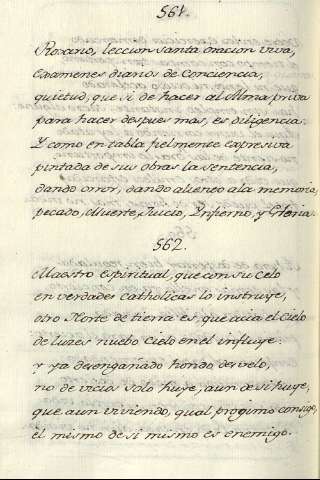 561.
Rosario, leccion santa oracion viva,
Examenes diarios de Conciencia,
quietud, que si de hacer al Alma priva
para hacer despues mas, es diligencia.
Y como en tabla fielmente expresiva
pintada de sus obras la sentencia,
dando orror, dando aliento a la memoria,
pecado, Muerte, Juicio, Ynfierno, y Gloria.
562.
Maestro Espiritual, que con su Celo
en verdades catholicas lo instruye,
otro Norte de tierra es, que acia el Cielo
de luzes nuebo Cielo en el influye:
y ya desengañado hondo desvelo,
no de vicios solo huye, aun de si huye,
que aun viviendo, qual progimo consigo,
el mismo de si mismo es enemigo.